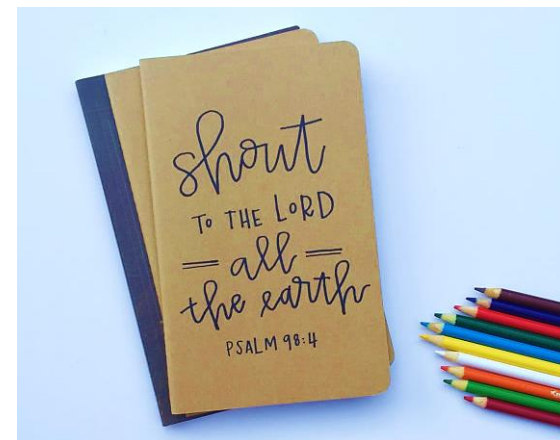 shout
TO THE LORD
all
the earth
PSALM 98:4